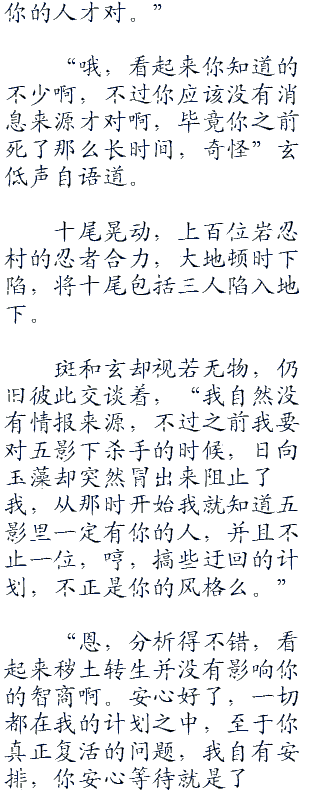 你的人才对。”
“哦，看起来你知道的
不少啊，不过你应该没有消
息来源才对啊，毕竟你之前
死了那么长时间，奇怪”玄
低声自语道。
十尾晃动，上百位岩忍
村的忍者合力，大地顿时下
陷，将十尾包括三人陷入地
下。
斑和玄却视若无物，仍
旧彼此交谈着，“我自然没
有情报来源，不过之前我要
对五影下杀手的时候，日向
玉藻却突然冒出来阻止了
我，从那时开始我就知道五
影里一定有你的人，并且不
止一位，哼，搞些迂回的计
划，不正是你的风格么。”
“恩，分析得不错，看
起来秽土转生并没有影响你
的智商啊。安心好了，一切
都在我的计划之中，至于你
真正复活的问题，我自有安
排，你安心等待就是了